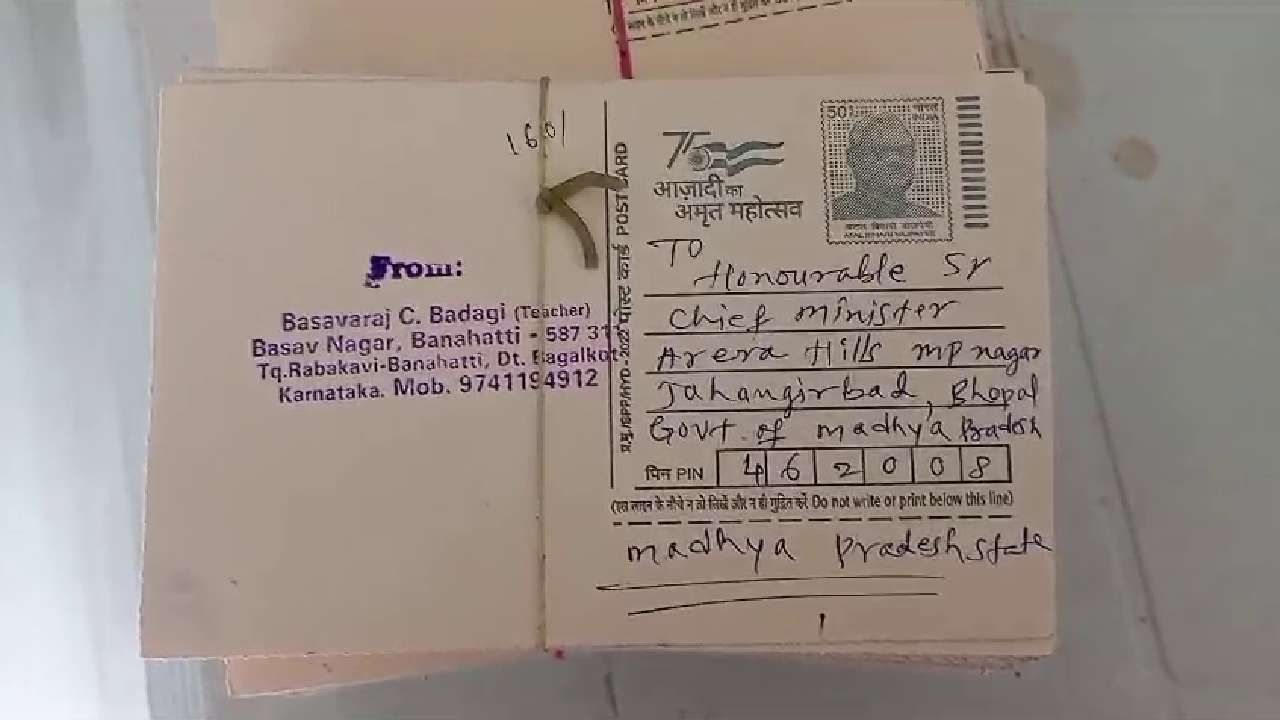 1601
From:
Basavaraj C. Badagi (Teacher)
Basav Nagar, Banahatti - 587 311
Tq.Rabakavi-Banahatti, Dt. Bagalkot
Karnataka. Mob. 9741194912
पोस्ट कार्ड POST CARD
75
आज़ादी का
अमृत महोत्सव
50
भारत
INDIA
TO
Honourable Sr
Chief minister
Arera Hills mp nagar
Jahangirbad, Bhopal
Govt. of madhya Pradesh
पिन PIN 462008
(इस लाइन के नीचे न तो लिखें और न ही मुद्रित करें Do not write or print below this line)
madhya pradesh state
1